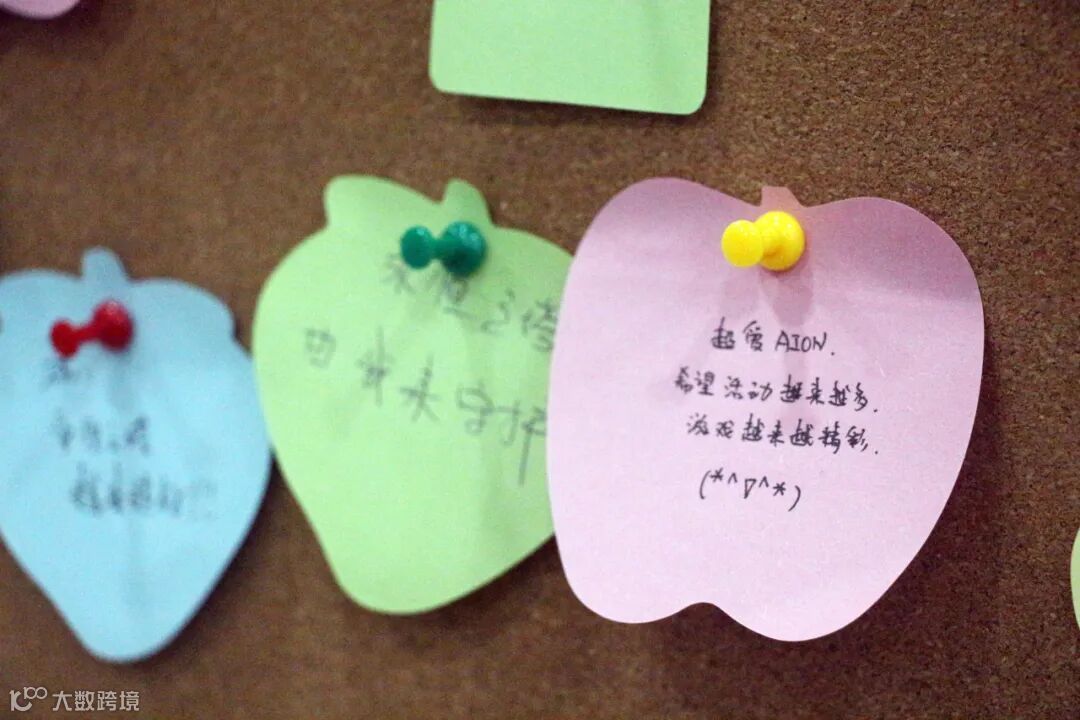 超爱AION.
希望活动越来越多.
游戏越来越精彩.
(*^∇^*)
永恒之塔
由我来守护
大数跨境